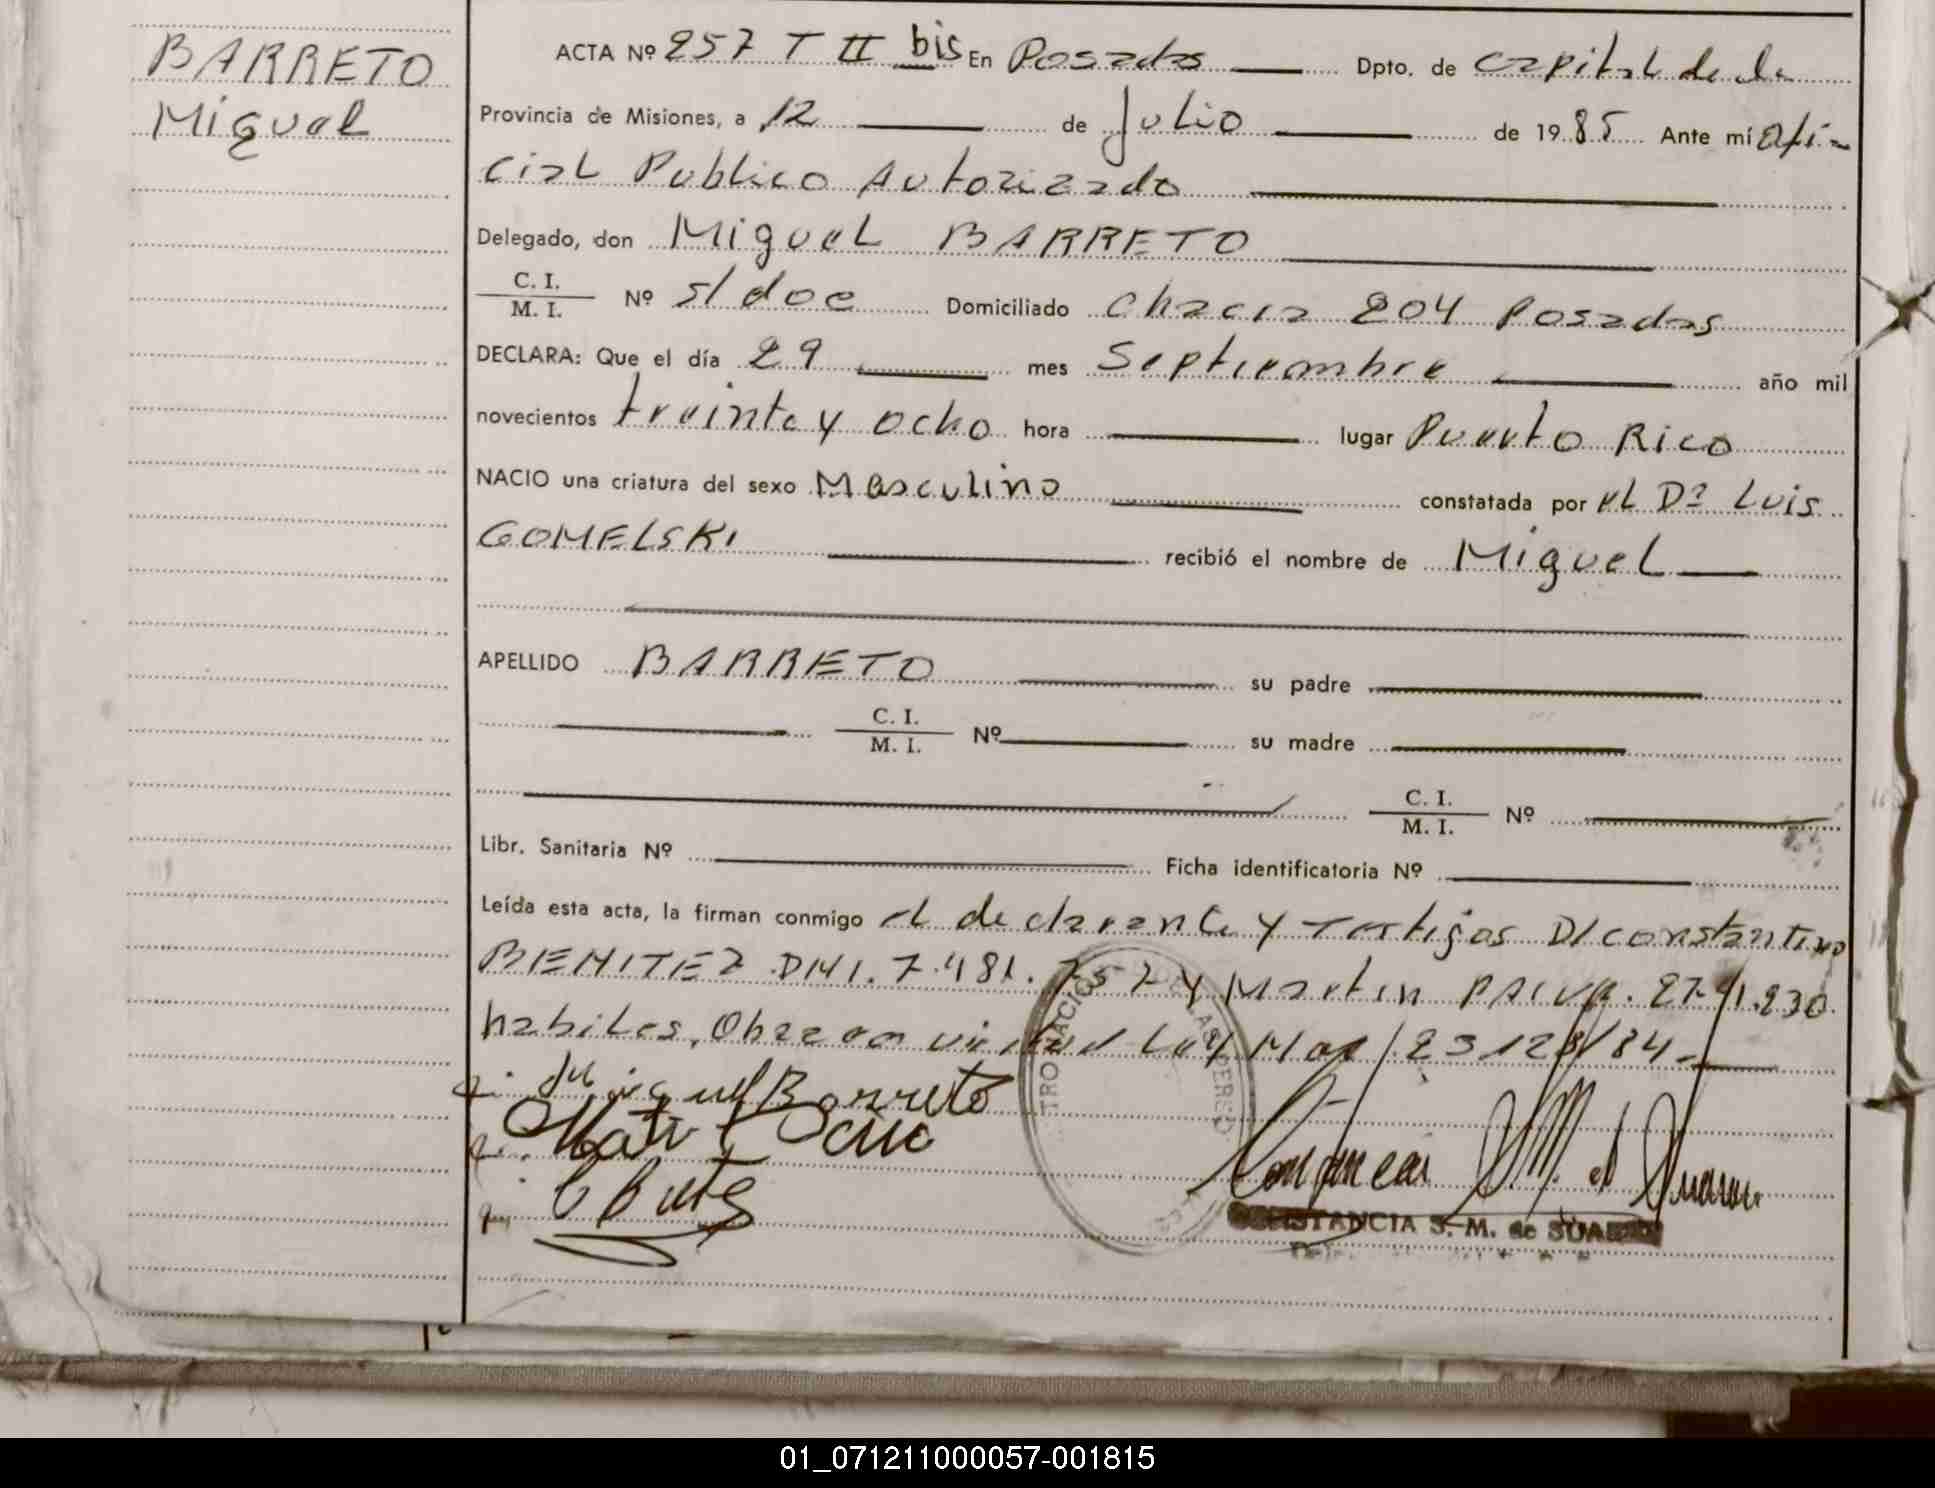 BARRETO
Miguel
ACTA Nº 257 T II bis En Posadas Dpto. de Capital de la
Provincia de Misiones, a 12 de Julio de 1985 Ante mí Ofi-
cial Publico Autorizado
Delegado, don Miguel BARRETO
C. I.
M. I. Nº s/doc Domiciliado Chacra 204 Posadas
DECLARA: Que el día 29 mes Septiembre año mil
novecientos treinta y ocho hora lugar Puerto Rico
NACIO una criatura del sexo Masculino constatada por el Dr Luis
GOMELSKI recibió el nombre de Miguel
APELLIDO BARRETO su padre
C. I.
M. I. Nº su madre
C. I.
M. I. Nº
Libr. Sanitaria Nº Ficha identificatoria Nº
Leída esta acta, la firman conmigo el declarante y testigos D/ Constantino
BENITEZ DNI. 7.481.757 y Martin PAIVA.
habiles, Obra en virtud Ley Nac/ 23128/84-
Miguel Barreto
CONSTANCIA S. M. de SUAREZ
01_071211000057-001815